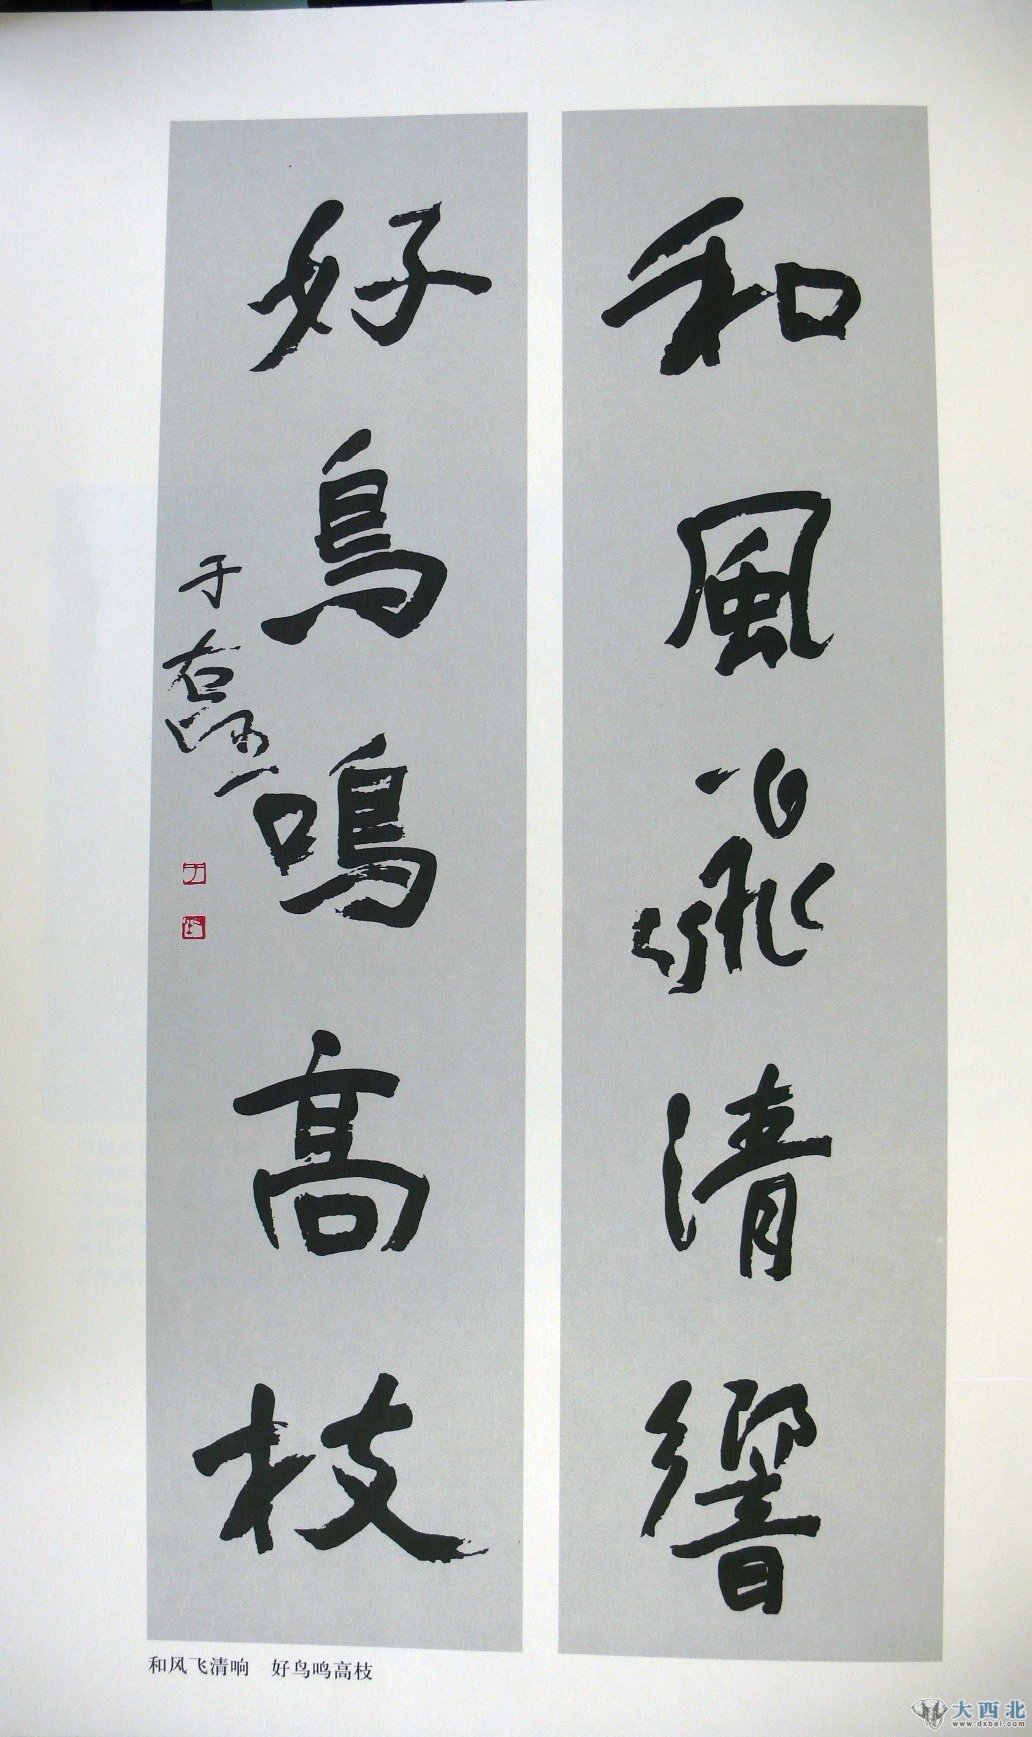 和風飛清響
好鳥鳴高枝
于右任
和风飞清响 好鸟鸣高枝
大西北
www.dxbei.com